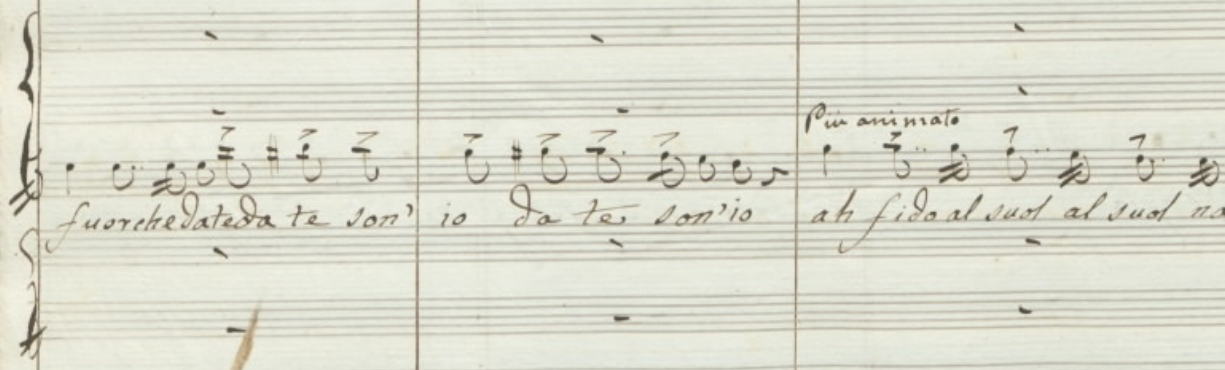 Piu animato
fuorchedateda te son' io da te son'io ah fido al suol al suol no